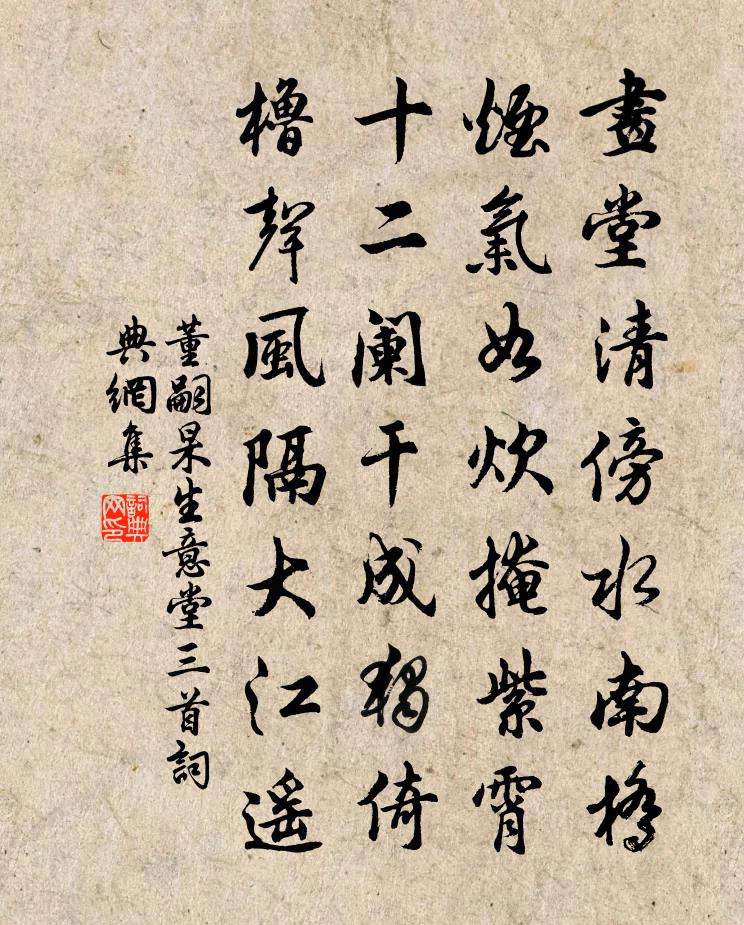 畫堂清傍水南橋
煙氣如炊掩紫霄
十二闌干成獨倚
櫓聲風隔大江遙
董嗣杲生意堂三首詞
典網集
詞典网印